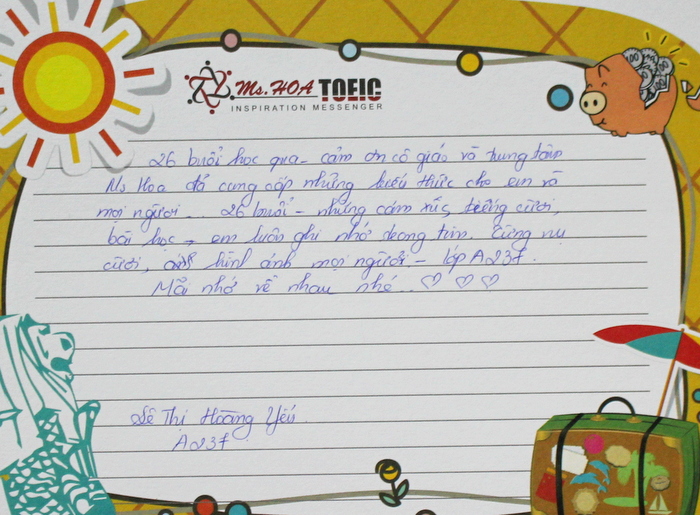 Ms. HOA TOEIC
INSPIRATION MESSENGER
26 buổi học qua - cảm ơn cô giáo và trung tâm
Ms Hoa đã cung cấp những kiến thức cho em và
mọi người. 26 buổi - những cảm xúc, tiếng cười,
bài học → em luôn ghi nhớ trong tim. Từng nụ
cười, hình ảnh mọi người - lớp A237.
Mãi nhớ về nhau nhé.. ♡ ♡ ♡
Lê Thị Hoàng Yến
A237